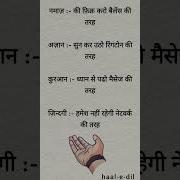 नमाज़ :- की फ़िक्र करो बैलेंस की
तरह
अज़ान :- सुन कर उठो रिंगटोन की
तरह
कुरआन :- ध्यान से पढो मैसेज की
तरह
ज़िन्दगी :- हमेश नहीं रहेगी नेटवर्क
की तरह
haal-e-dil